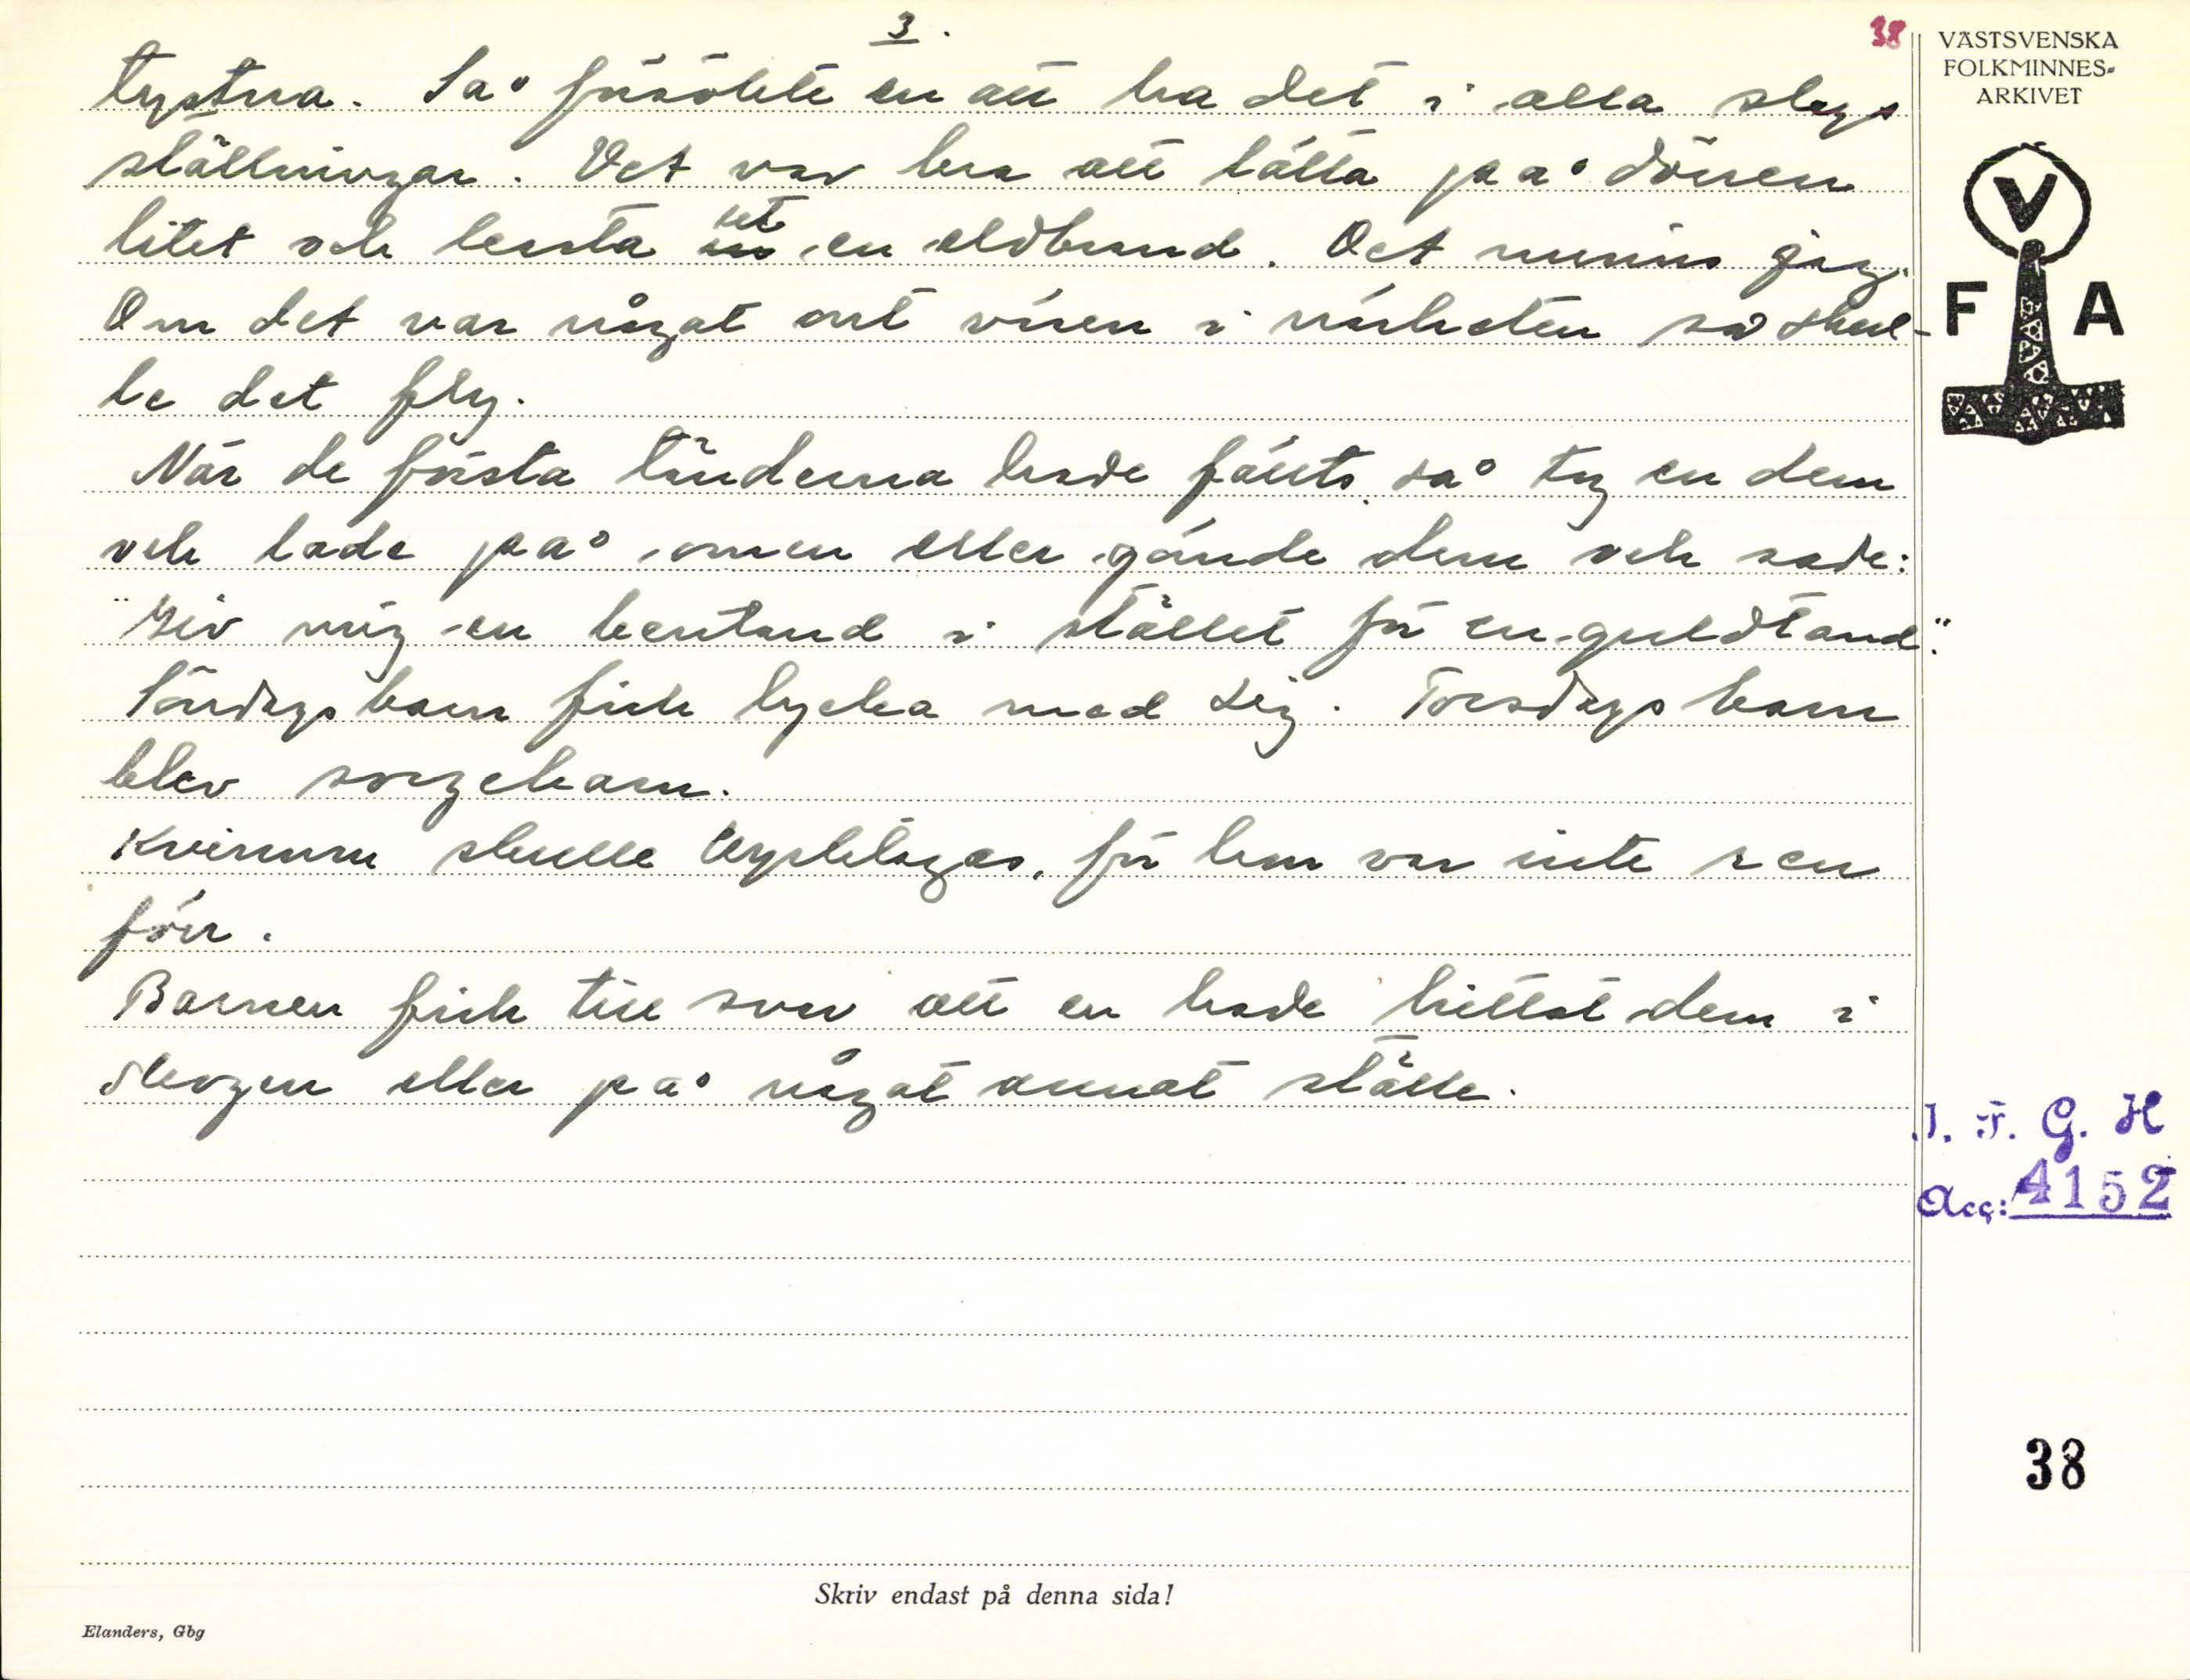 3.
38
VÄSTSVENSKA
FOLKMINNES-
ARKIVET
V
F A
tystna. Så försökte en att ha det i alla slags
ställningar. Det var bra att lätta på dörren
litet och kasta ut en eldbrand. Det minns jag.
Om det var något ont väsen i närheten så skul-
le det fly.
När de första tänderna hade fällts så tog en dem
och lade på omen eller gömde dem och sade:
"Giv mig en bentand i stället för en guldtand."
Söndagsbarn fick lycka med sig. Torsdagsbarn
blev sorgebarn.
Kvinnan skulle kyrktagas, för hon var inte ren
förr.
Barnen fick till svar att en hade hittat dem i
skogen eller på något annat ställe.
I. F. G. H
Acc: 4152
38
Skriv endast på denna sida!
Elanders, Gbg